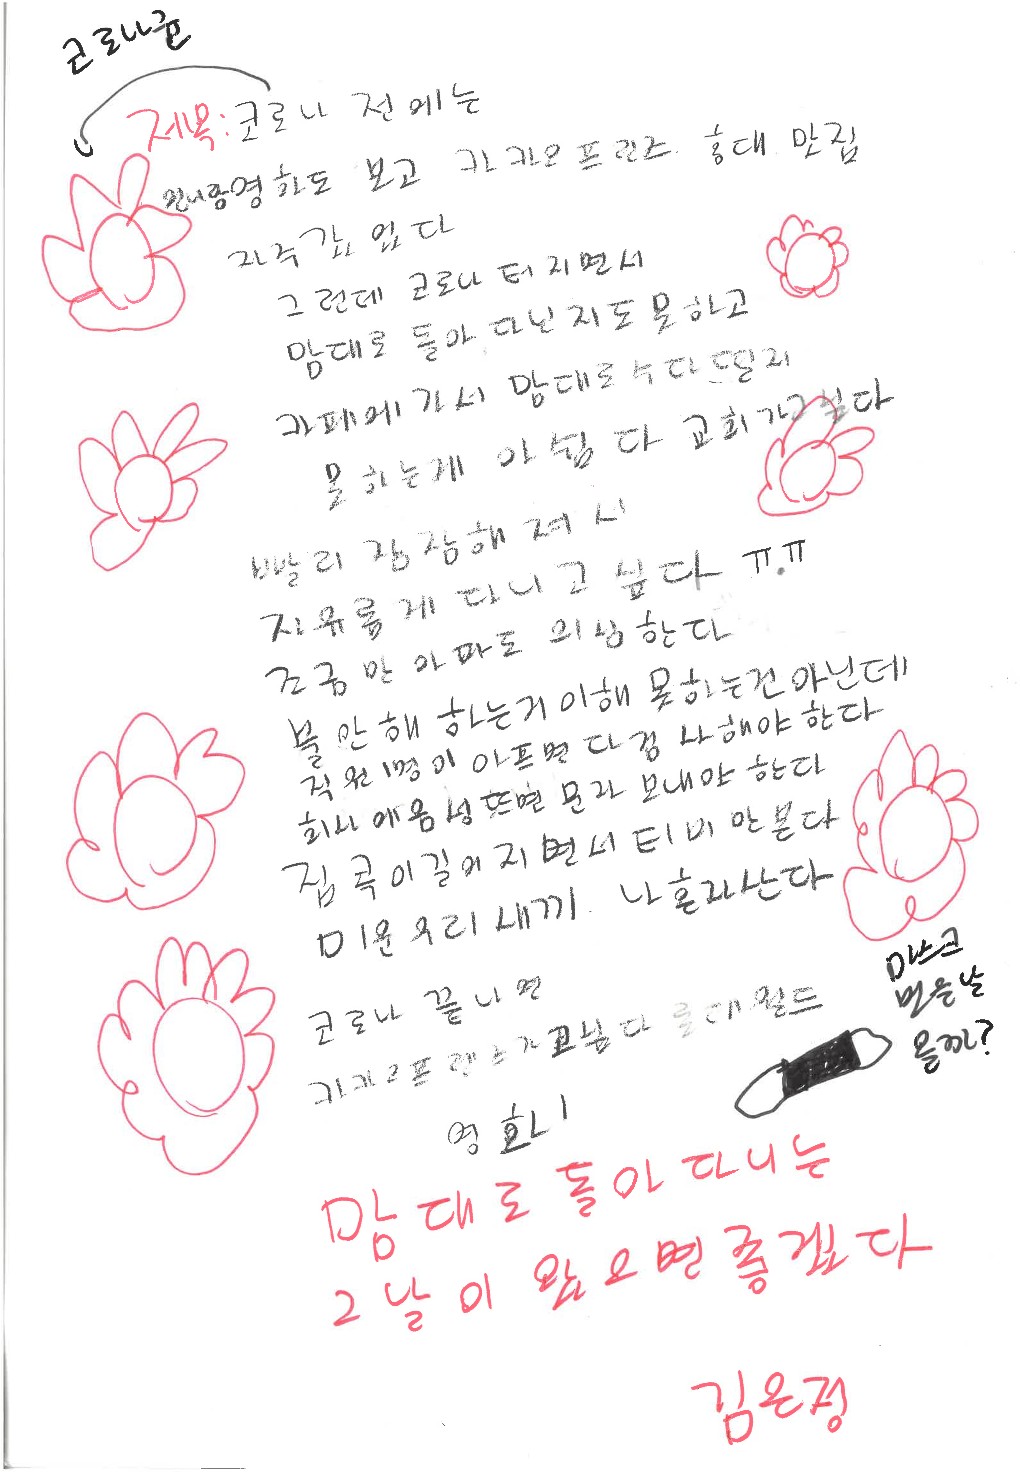 코로나꾼
제목: 코로나 전에는
언니랑영화도 보고 카카오프렌즈 홍대 맛집
자주갔었다
그런데 코로나 터지면서
맘대로 돌아 다닌지도 못하고
카페에가서 맘대로수다떨지
못하는게 아쉽다 교회가고싶다
빨리 잠잠해져서
자유롭게 다니고 싶다 ㅠ.ㅠ
조금만 아파도 의심한다
불안해 하는거이해 못하는건아닌데
직원1명이 아프면 다검사해야한다
회사에음성뜨면 문자 보내야 한다
집콕이길어지면서 티비만본다
미운우리새끼 나혼자산다
코로나 끝나면
카카오프렌즈가고싶다 롯데월드
영화
맘대로 돌아다니는
그날이 왔으면좋겠다
마스크
벗을날
올까?
김은정